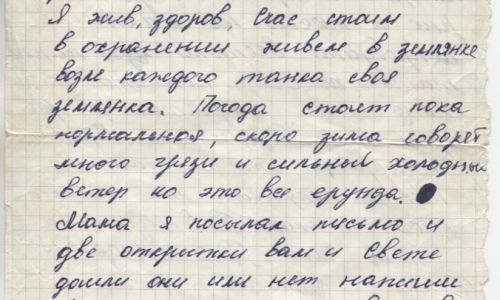 Я жив, здоров, счас стоим
в охранении живем в землянке
возле каждого танка своя
землянка. Погода стоит пока
нормальная, скоро зима говорят
много грязи и сильный холодный
ветер но это все ерунда.
Мама я посылал письмо и
две открытки вам и Свете
дошли они или нет напиши